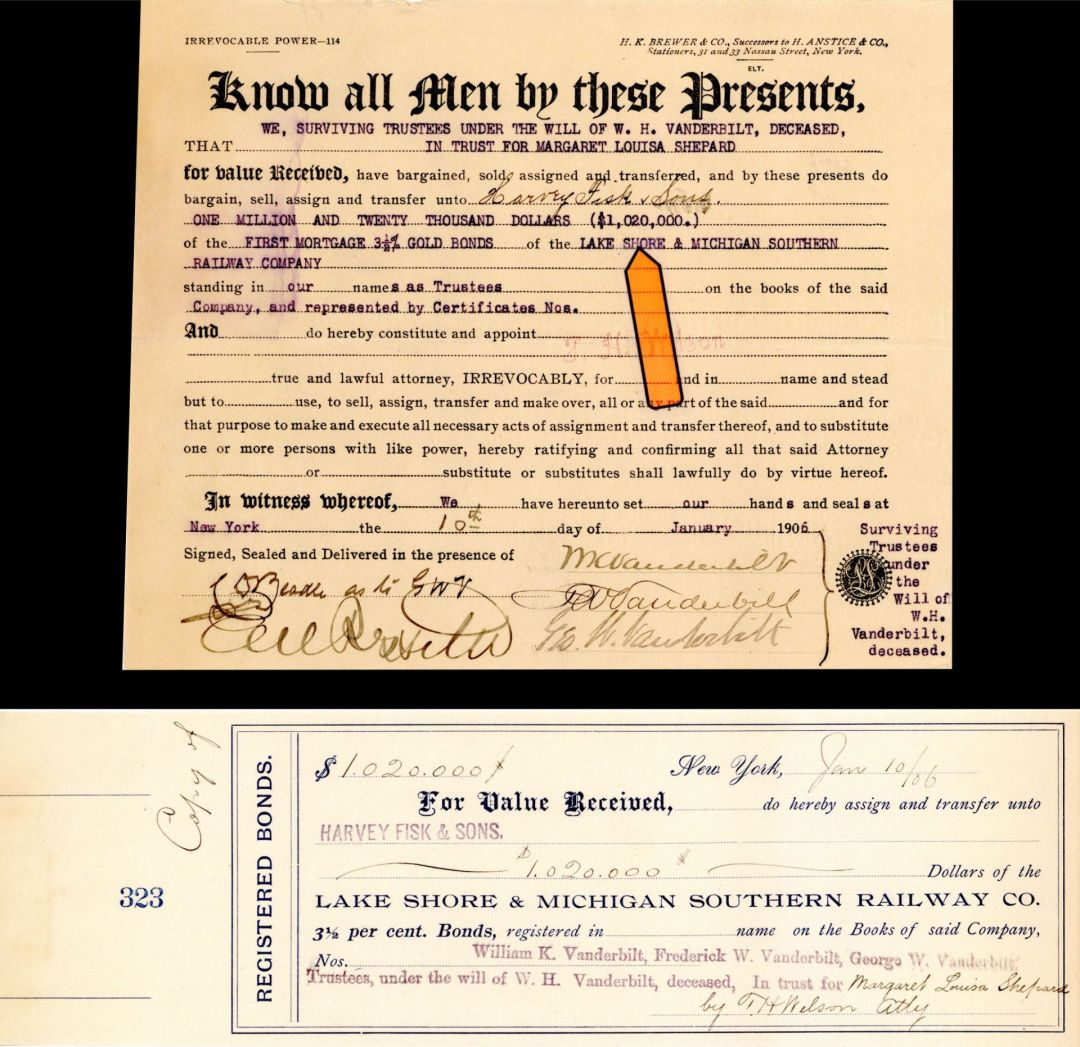 IRREVOCABLE POWER—114
H. K. BREWER & CO., Successors to H. ANSTICE & CO.,
Stationers, 31 and 33 Nassau Street, New York.
ELT.
Know all Men by these Presents,
WE, SURVIVING TRUSTEES UNDER THE WILL OF W. H. VANDERBILT, DECEASED,
THAT IN TRUST FOR MARGARET LOUISA SHEPARD
for value Received, have bargained, sold, assigned and transferred, and by these presents do
bargain, sell, assign and transfer unto Harvey Fisk & Sons.
ONE MILLION AND TWENTY THOUSAND DOLLARS ($1,020,000.)
of the FIRST MORTGAGE 3½% GOLD BONDS of the LAKE SHORE & MICHIGAN SOUTHERN
RAILWAY COMPANY
standing in our names as Trustees on the books of the said
Company, and represented by Certificates Nos.
And do hereby constitute and appoint
T. H. Wilson
true and lawful attorney, IRREVOCABLY, for and in name and stead
but to use, to sell, assign, transfer and make over, all or any part of the said and for
that purpose to make and execute all necessary acts of assignment and transfer thereof, and to substitute
one or more persons with like power, hereby ratifying and confirming all that said Attorney
or substitute or substitutes shall lawfully do by virtue hereof.
In witness whereof, We have hereunto set our hands and seals at
New York the 10th day of January 1906
Signed, Sealed and Delivered in the presence of
as to GWV
WKVanderbilt
FWVanderbilt
Geo. W. Vanderbilt
Surviving
Trustees
under
the
Will of
W.H.
Vanderbilt,
deceased.
Copy of
323
REGISTERED BONDS.
$1.020.000 New York, Jan 10/06
For Value Received, do hereby assign and transfer unto
HARVEY FISK & SONS.
$1.020.000 Dollars of the
LAKE SHORE & MICHIGAN SOUTHERN RAILWAY CO.
3½ per cent. Bonds, registered in name on the Books of said Company,
Nos. William K. Vanderbilt, Frederick W. Vanderbilt, George W. Vanderbilt,
Trustees, under the will of W. H. Vanderbilt, deceased, In trust for Margaret Louisa Shepard
by T.H.Wilson Atty